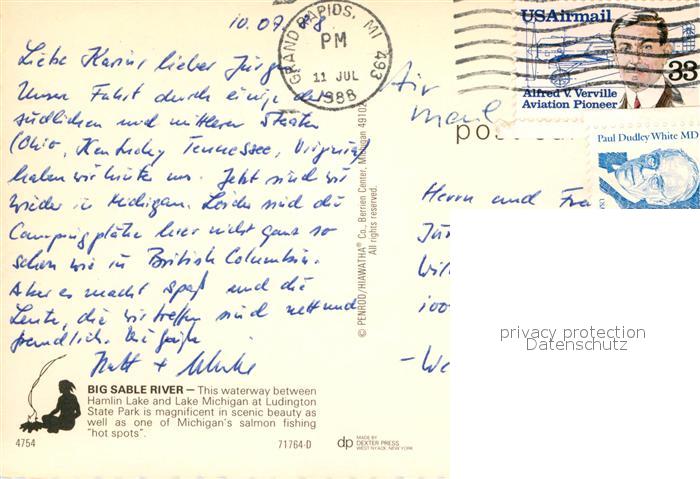 10.07.88
Liebe Karin, lieber Jürgen
Unsere Fahrt durch einige der
südlichen und mittleren Staaten
(Ohio, Kentucky Tennessee, Virginia)
haben wir hinter uns. Jetzt sind wir
wieder in Michigan. Leider sind die
Campingplätze hier nicht ganz so
schön wie in British Columbia.
Aber es macht Spaß und die
Leute, die wir treffen sind nett und
freundlich. Viele Grüße
+ Ulrike
GRAND RAPIDS, MI 493
PM
11 JUL
1988
Air
mail
USAirmail
33
Alfred V. Verville
Aviation Pioneer
Paul Dudley White MD
USA
Herrn und
privacy protection
Datenschutz
© PENROD/HIAWATHA® Co., Berrien Center, Michigan 49102
All rights reserved.
BIG SABLE RIVER — This waterway between
Hamlin Lake and Lake Michigan at Ludington
State Park is magnificent in scenic beauty as
well as one of Michigan's salmon fishing
"hot spots".
4754
71764-D
dp MADE BY
DEXTER PRESS
WEST NYACK, NEW YORK